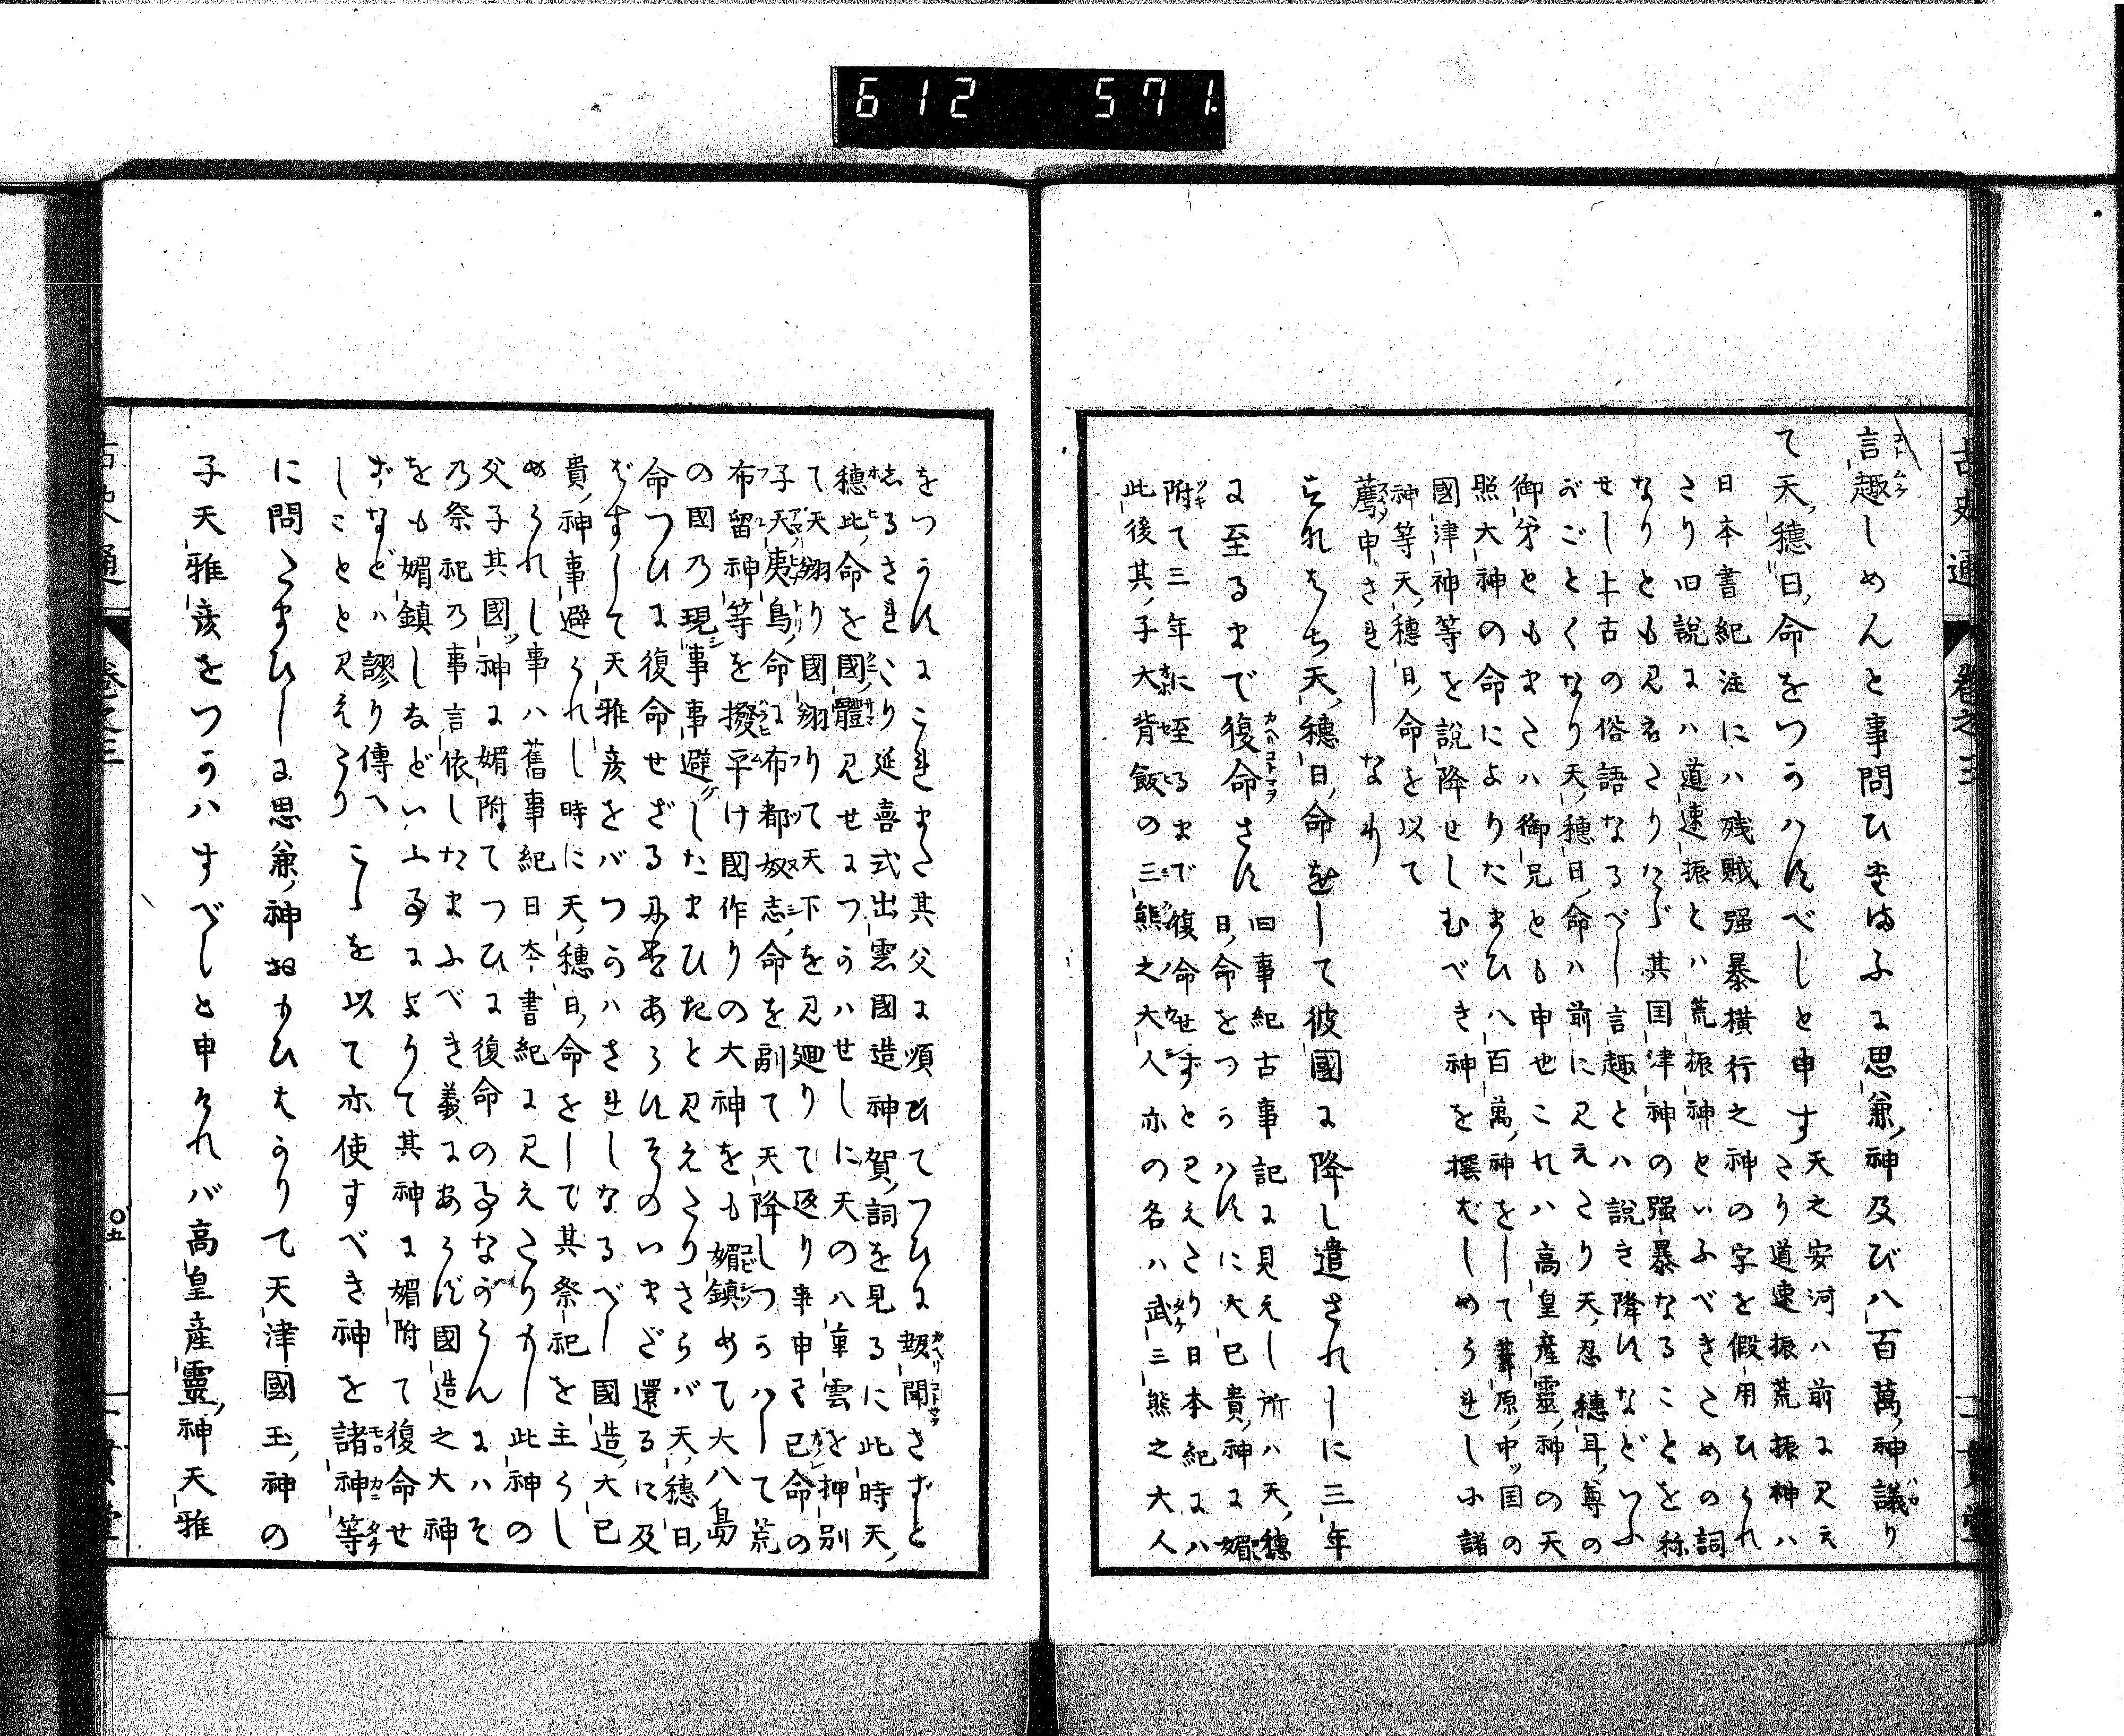 612 571
言趣しめんと事問ひ玉ふに思兼神及び八百萬神議り
て天穂日命をつかハすべしと申す天之安河ハ前に見え
たり道速振荒振神ハ
日本書紀注にハ残賊强暴横行之神の字を假用ひられ
たり旧説にハ道速振とハ荒振神といふべきための詞
なりとも見えたりたゞ其国津神の强暴なることを称
せし上古の俗語なるべし言趣とハ説き降すなどいふ
がごとくなり天穂日命ハ前に見えたり天忍穂耳尊の
御弟ともまたハ御兄とも申也これハ高皇産靈神の天
照大神の命によりたまひ八百萬神をして葦原中ッ国の
國津神等を説降せしむべき神を撰むしめられしに諸
神等天穂日命を以て
薦申されしなり
すなはち天穂日命をして彼國に降し遣されしに三年
に至るまで復命さず旧事紀古事記に見えし所ハ天穂
日命をつかハすに大已貴神に媚
附て三年に至るまで復命せずと見えたり日本紀にハ
此後其子大背飯の三熊之大人亦の名ハ武三熊之大人
をつかすにこれまた其父に順ひてつひに報聞さずと
しるされたり延喜式出雲國造神賀詞を見るに此時天
穂比命を國體見せにつかハせしに天の八重雲を押別
て天翔り國翔りて天下を見廻りて返り事申て已命の
子天夷鳥命に布都奴志命を副て天降しつかハして荒
布留神等を撥平け國作りの大神をも媚鎮めて大八島
の國乃現事事避したまひたと見えたりさらバ天穂日
命つひに復命せざるにもあらすそのいまだ還るに及
ばすして天雅彦をバつかハされしなるべし國造大已
貴神事避られし時に天穂日命をして其祭祀を主らし
められし事ハ舊事紀日本書紀に見えたりかし此神の
父子其國ッ神に媚附てつひに復命の事なからんにハそ
乃祭祀乃事言依したまふべき義にあらず國造之大神
をも媚鎮しなどいふ事によりて其神に媚附て復命せ
ずなどハ謬り傳へ
しことと見えたり こゝを以て亦使すべき神を諸神等
に問たまひしに思兼神おもひはかりて天津國玉神の
子天雅彦をつかハすべしと申されバ高皇産靈神天雅